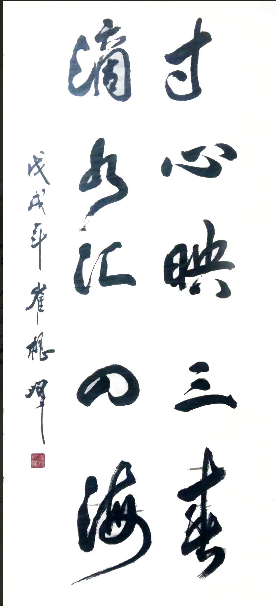 寸心映三春
滴水汇四海
戊戌年崔杨